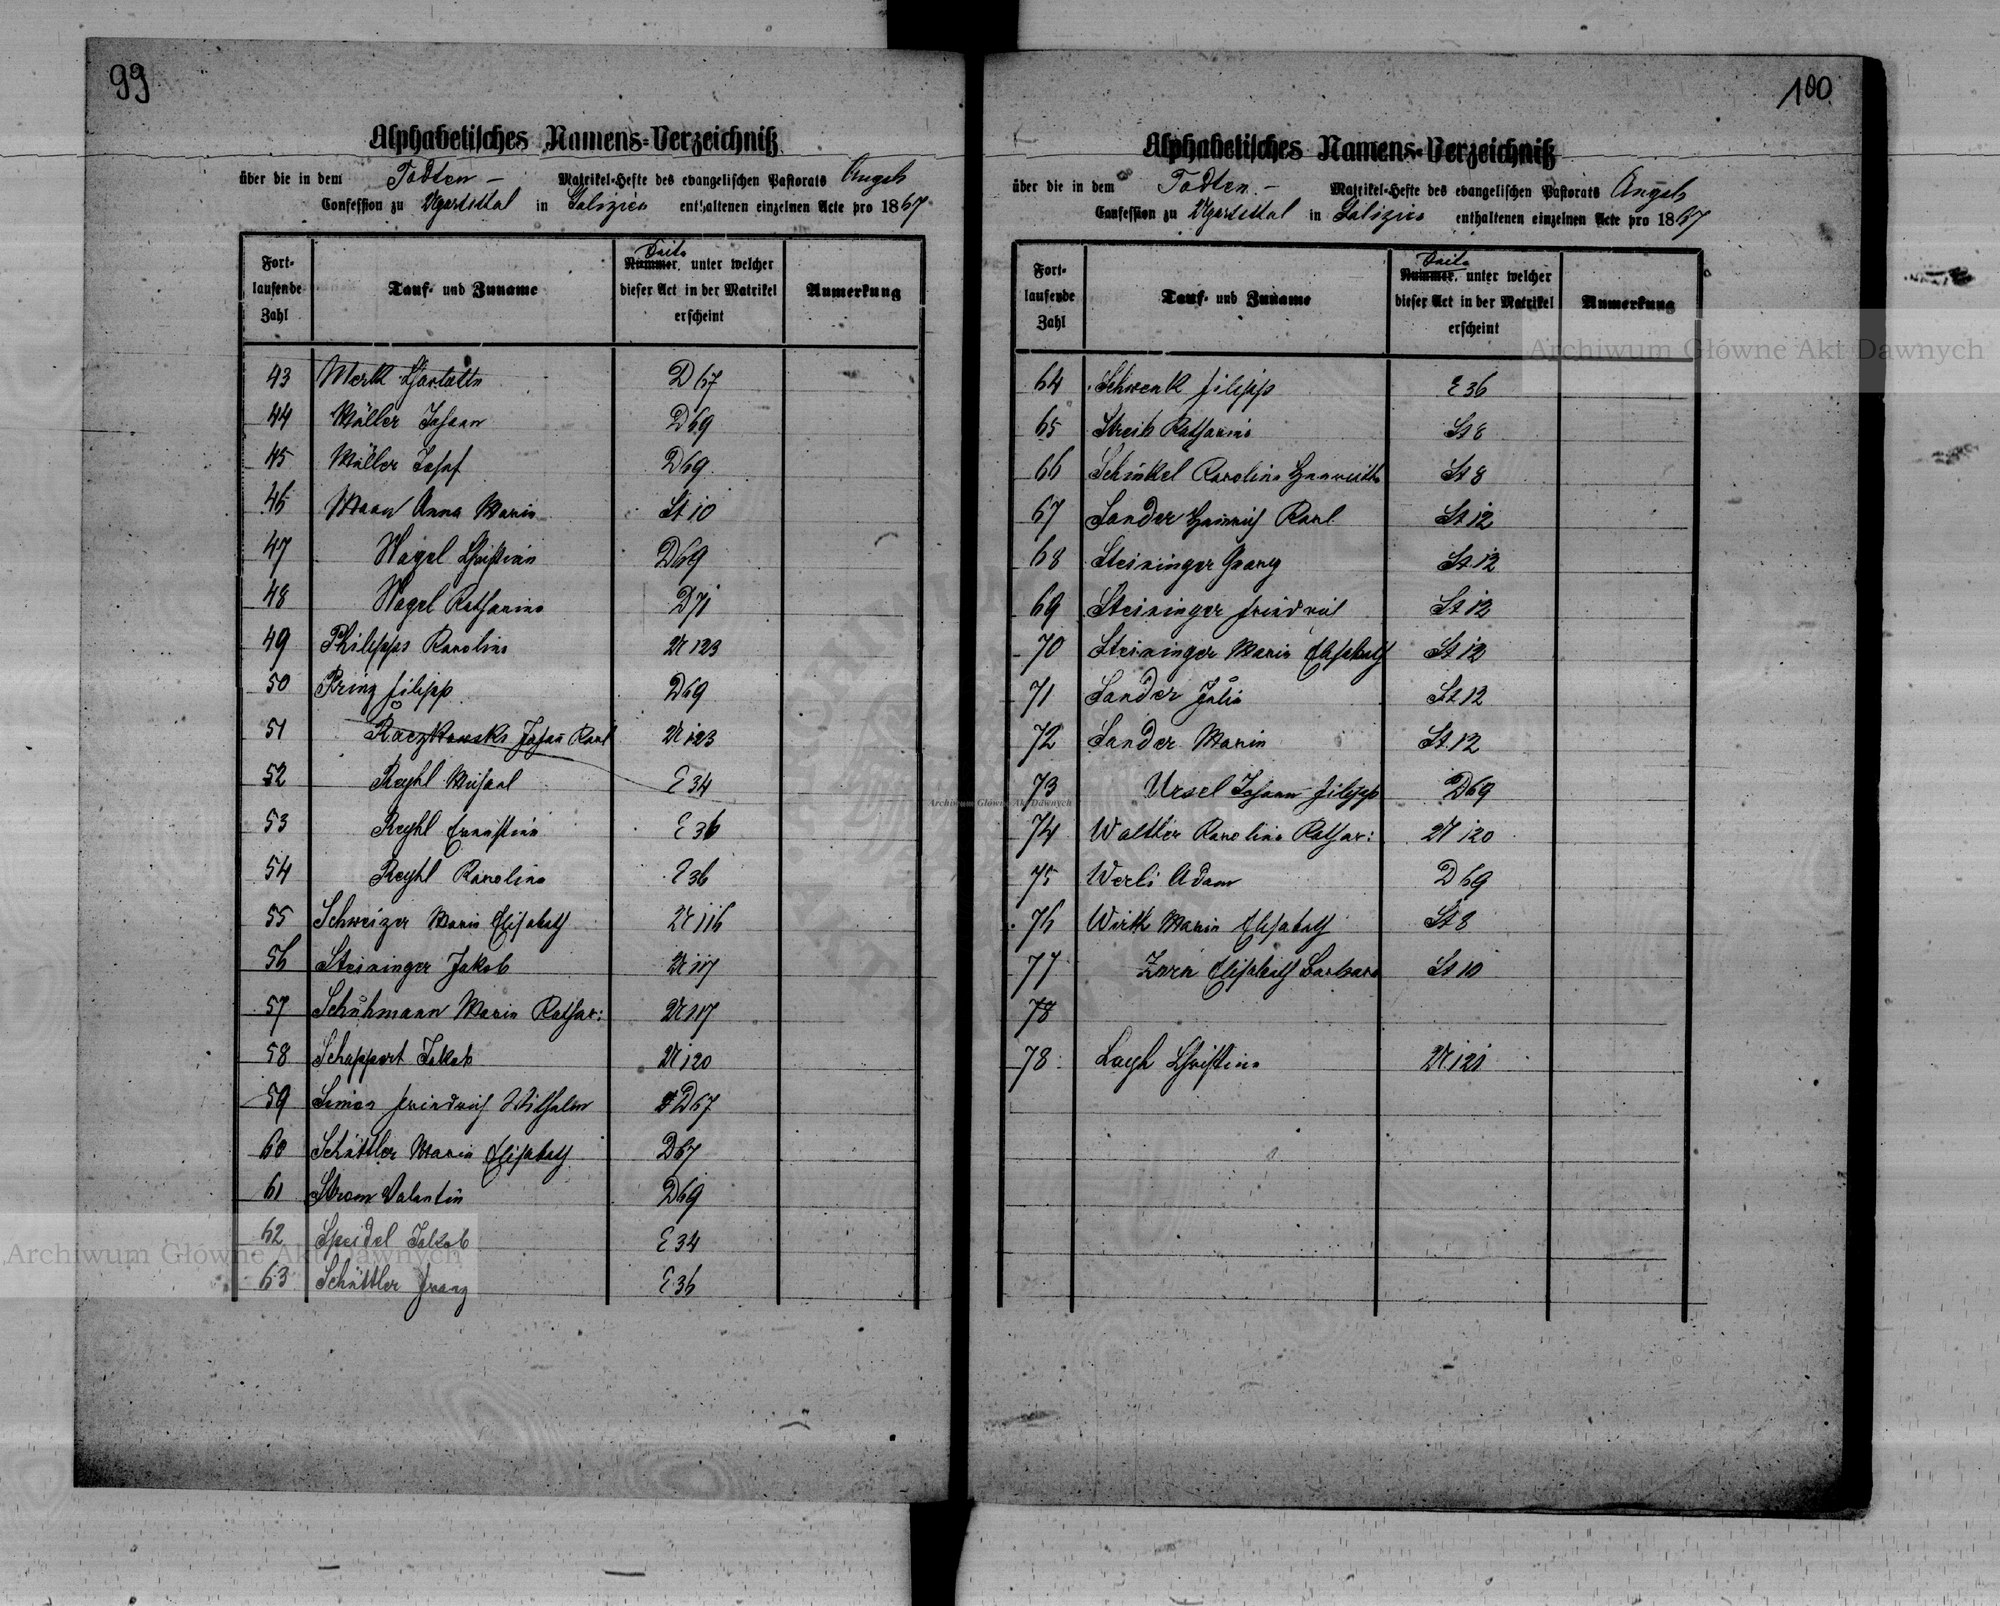 99
Alphabetisches Namens-Verzeichniß
über die in dem Todten- Matrikel-Hefte des evangelischen Pastorats Augsb
Confession zu Ugartsthal in Galizien enthaltenen einzelnen Acte pro 1867
Fort-laufende Zahl | Tauf- und Zuname | Seite Nummer unter welcher dieser Act in der Matrikel erscheint | Anmerkung
43 Merk Charlotte D 67
44 Müller Johann D 69
45 Müller Josef D 69
46 Mann Anna Maria St 10
47 Nagel Christian D 69
48 Nagel Katharina D 71
49 Philipps Karolina U 123
50 Prinz Filipp D 69
51 Raczkowski Johann Karl U 123
52 Reyhl Michael E 34
53 Reyhl Ernestine E 36
54 Reyhl Karolina E 36
55 Schweizer Maria Elisabeth U 116
56 Steininger Jakob U 117
57 Schuhmann Maria Kathar: U 117
58 Schappert Jakob U 120
59 Simon Friedrich Wilhelm D 67
60 Schüttler Maria Elisabeth D 67
61 Strom Valentin D 69
62 Speidel Jakob E 34
63 Schüttler Franz E 36
100
Alphabetisches Namens-Verzeichniß
über die in dem Todten- Matrikel-Hefte des evangelischen Pastorats Augsb
Confession zu Ugartsthal in Galizien enthaltenen einzelnen Acte pro 1867
Fort-laufende Zahl | Tauf- und Zuname | Seite Nummer unter welcher dieser Act in der Matrikel erscheint | Anmerkung
64 Schwenk Filipp E 36
65 Streib Katharina St 8
66 Schinkel Karolina Henriette St 8
67 Sander Heinrich Karl St 12
68 Steininger Georg St 12
69 Steininger Friedrich St 12
70 Steininger Maria Elisabeth St 12
71 Sander Julia St 12
72 Sander Maria St 12
73 Ursel Johann Filipp D 69
74 Walther Karolina Kathar: U 120
75 Werli Adam D 69
76 Wirth Maria Elisabeth St 8
77 Zorn Elisabeth Barbara St 10
78
78 Christina U 121
Archiwum Główne Akt Dawnych
Archiwum Główne Akt Dawnych
Archiwum Główne Akt Dawnych